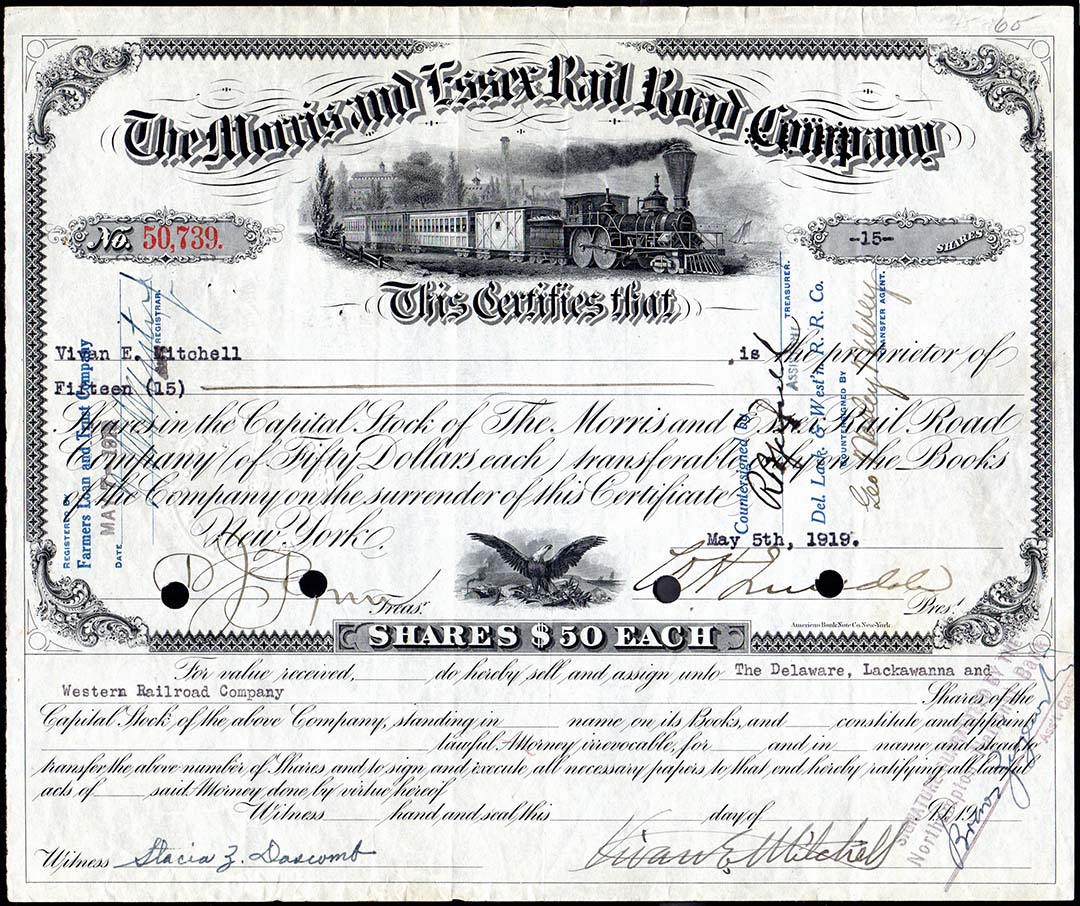 65
The Morris and Essex Rail Road Company
No. 50,739.
-15- SHARES
This Certifies that
Vivan E. Mitchell is the proprietor of
Fifteen (15)
Shares in the Capital Stock of The Morris and Essex Rail Road
Company (of Fifty Dollars each) transferable on the Books
of the Company on the surrender of this Certificate
New York, May 5th, 1919.
Treasr.
Prest.
American Bank Note Co. New-York.
SHARES $50 EACH
REGISTERED BY
Farmers Loan and Trust Company
DATE
REGISTRAR.
Countersigned by
ASSISTANT TREASURER.
Del. Lack. & West'n. R. R. Co.
COUNTERSIGNED BY
TRANSFER AGENT.
For value received, do hereby sell and assign unto The Delaware, Lackawanna and
Western Railroad Company Shares of the
Capital Stock of the above Company, standing in name on its Books, and constitute and appoint
lawful Attorney irrevocable, for and in name and stead to
transfer the above number of Shares and to sign and execute all necessary papers to that end hereby ratifying all lawful
acts of said Attorney done by virtue hereof
Witness hand and seal this day of A.D. 19
Witness Stacia Z. Dascomb Vivan E. Mitchell
SIGNATURE GUARANTEED BY THE
Northampton National Bank